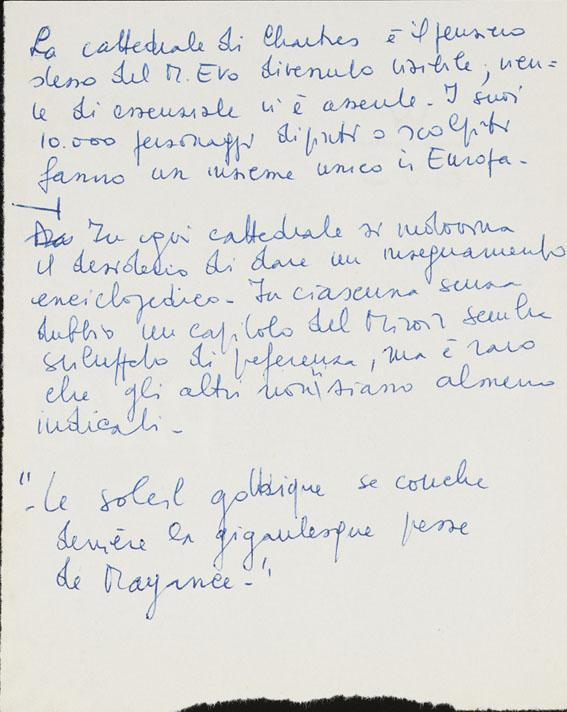 La cattedrale di Chartres è il pensiero
stesso del M. Evo divenuto visibile; nien=
te di essenziale vi è assente. I suoi
10.000 personaggi dipinti o scolpiti
fanno un insieme unico in Europa.
In ogni cattedrale si indovina
il desiderio di dare un insegnamento
enciclopedico. In ciascuna senza
dubbio un capitolo del Miroir sembra
sviluppato di preferenza, ma è raro
che gli altri non vi siano almeno
indicati.
"- Le soleil gothique se couche
derrière la gigantesque presse
de Mayance."